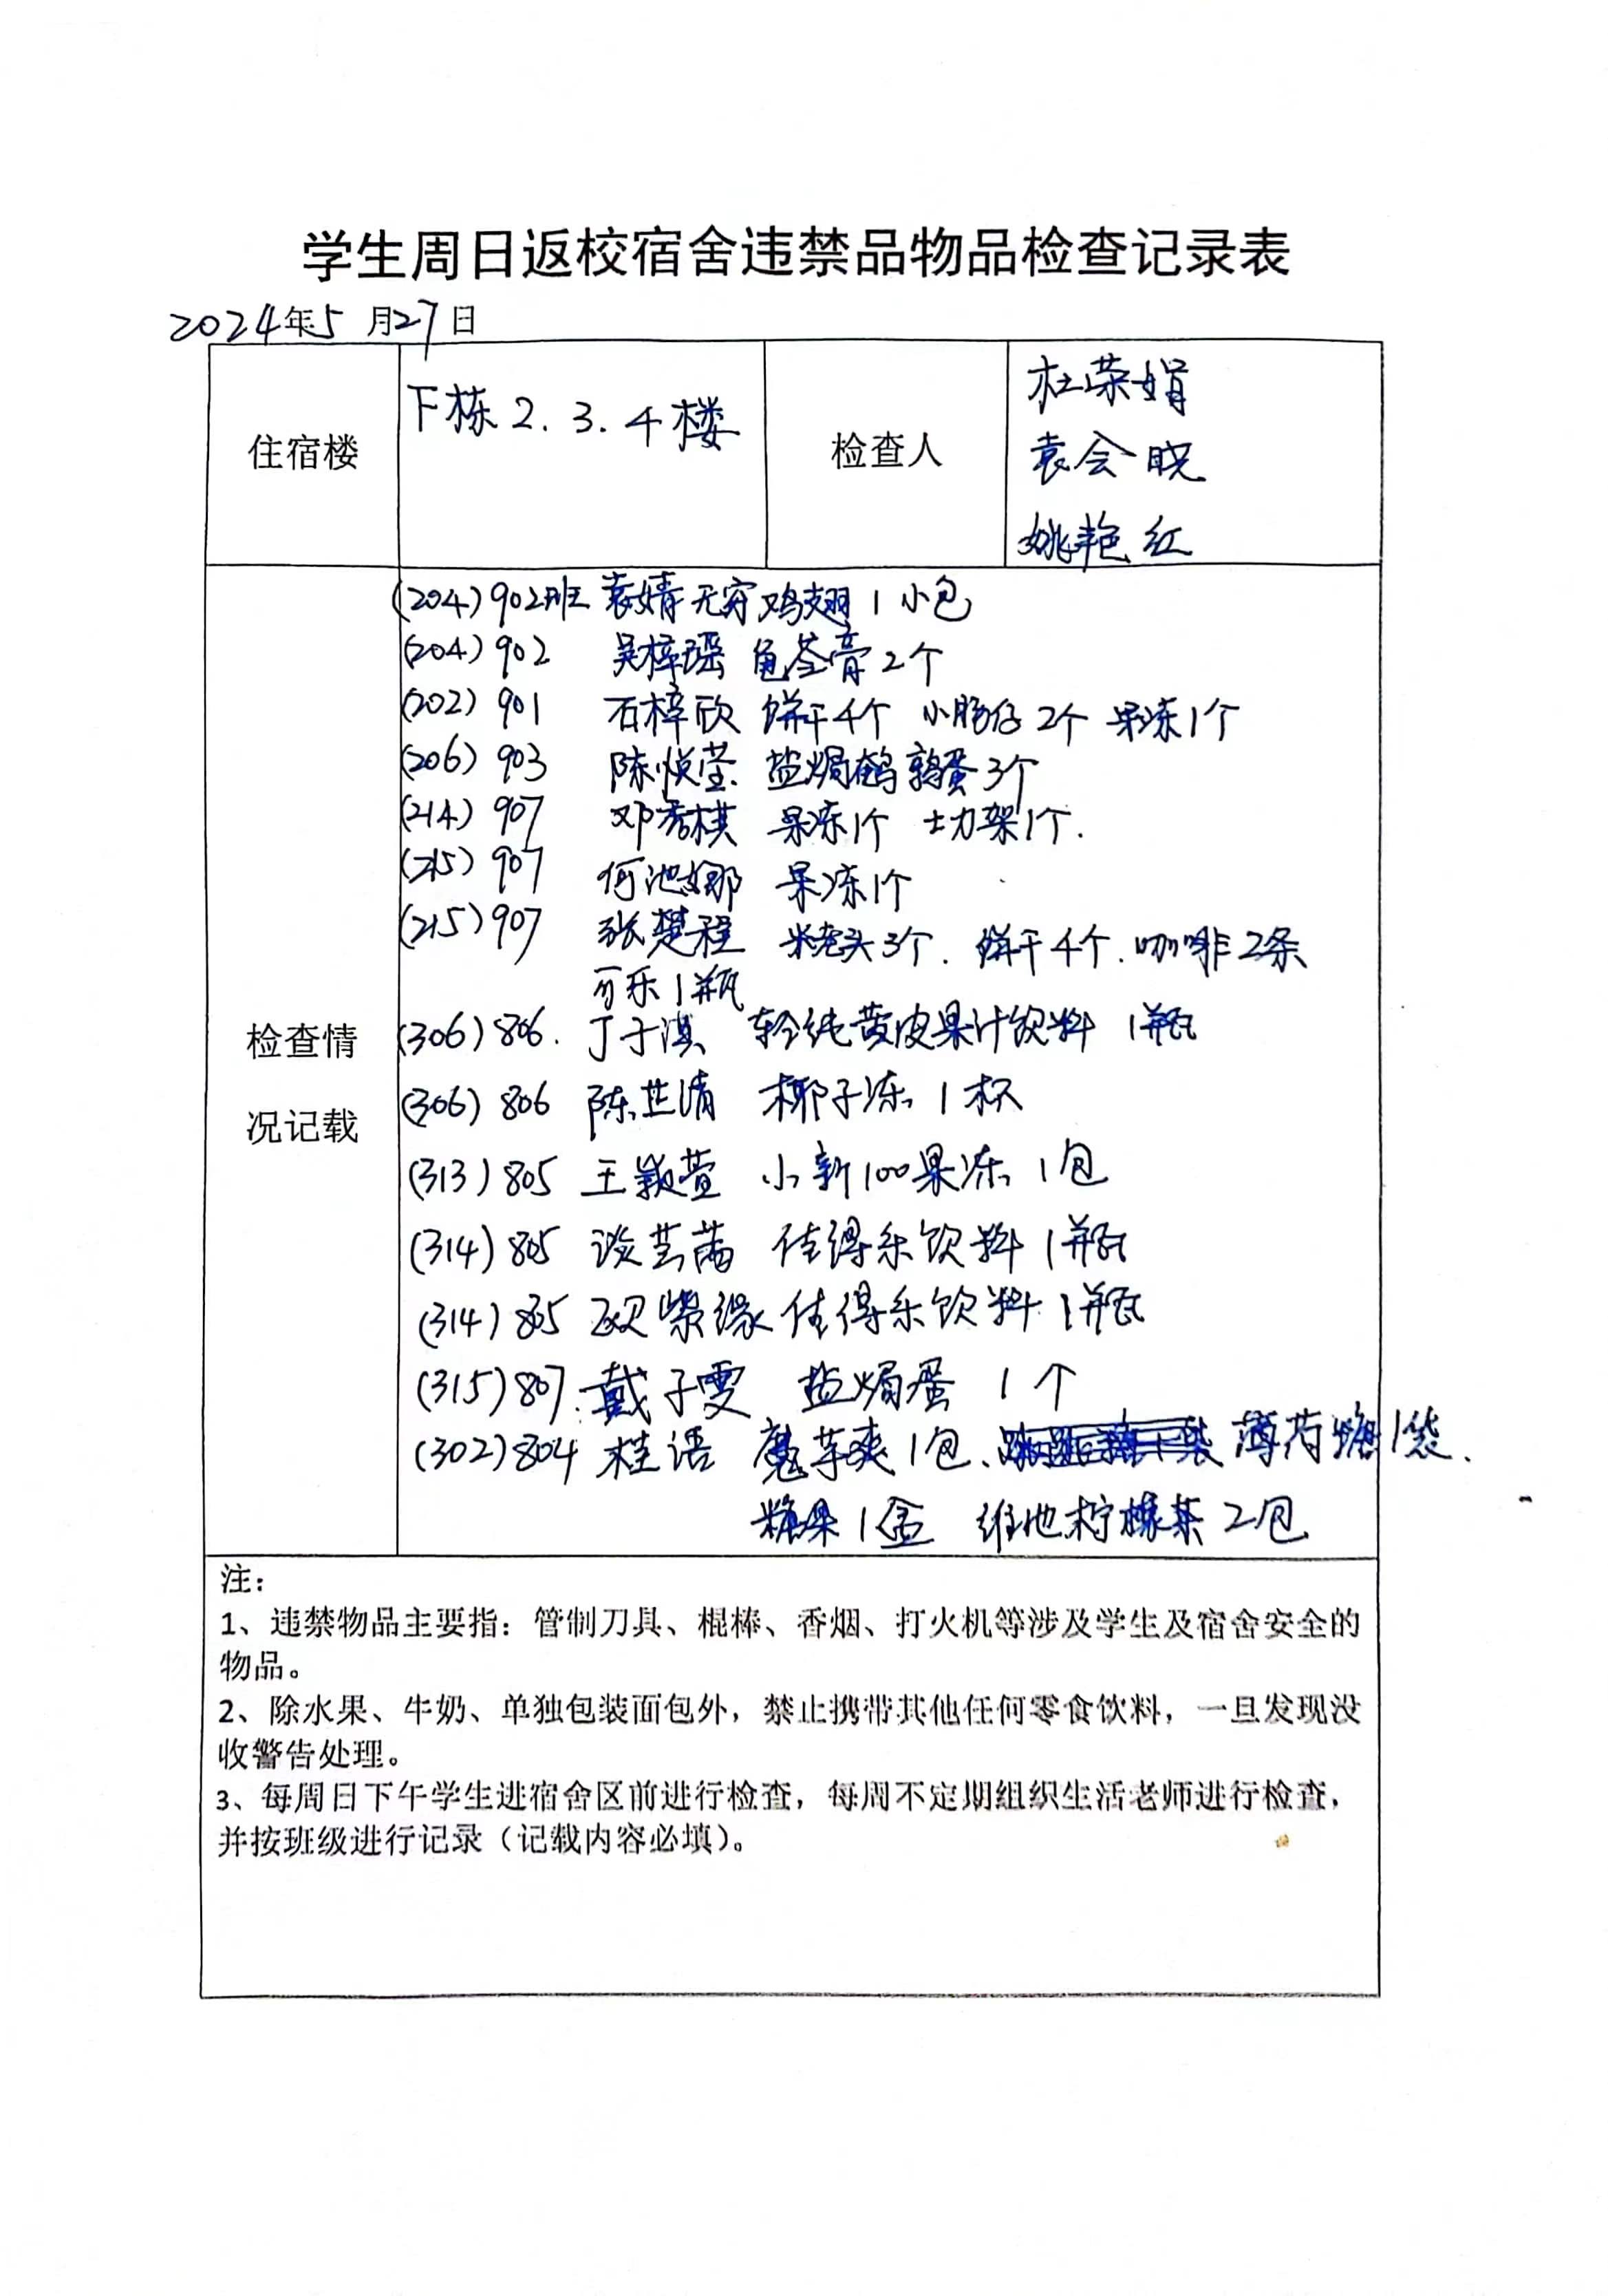 学生周日返校宿舍违禁品物品检查记录表
2024年5月27日
住宿楼
下栋2.3.4楼
检查人
杜荣娟
袁会晓
姚艳红
检查情
况记载
(204)902班 袁婧 无穷鸡翅1小包
(204)902 吴梓瑶 龟苓膏2个
(202)901 石梓欣 饼干4个 小肠仔2个 果冻1个
(206)903 陈悦莹 盐焗鹌鹑蛋3个
(214)907 邓秀棋 果冻1个 士力架1个.
(215)907 何池娜 果冻1个
(215)907 张楚程 米老头3个. 饼干4个. 咖啡2条
可乐1瓶
(306)806. 丁子淇 轻纯黄皮果汁饮料 1瓶
(306)806 陈芷清 椰子冻1杯
(313)805 王颖萱 小新100果冻1包
(314)805 谈芸茜 佳得乐饮料1瓶
(314)805 紫缘 佳得乐饮料1瓶
(315)807. 戴子雯 盐焗蛋 1个
(302)804 桂语 魔芋爽1包、薄荷糖1袋.
糖果1盒 维他柠檬茶2包
注：
1、违禁物品主要指：管制刀具、棍棒、香烟、打火机等涉及学生及宿舍安全的
物品。
2、除水果、牛奶、单独包装面包外，禁止携带其他任何零食饮料，一旦发现没
收警告处理。
3、每周日下午学生进宿舍区前进行检查，每周不定期组织生活老师进行检查，
并按班级进行记录（记载内容必填）。